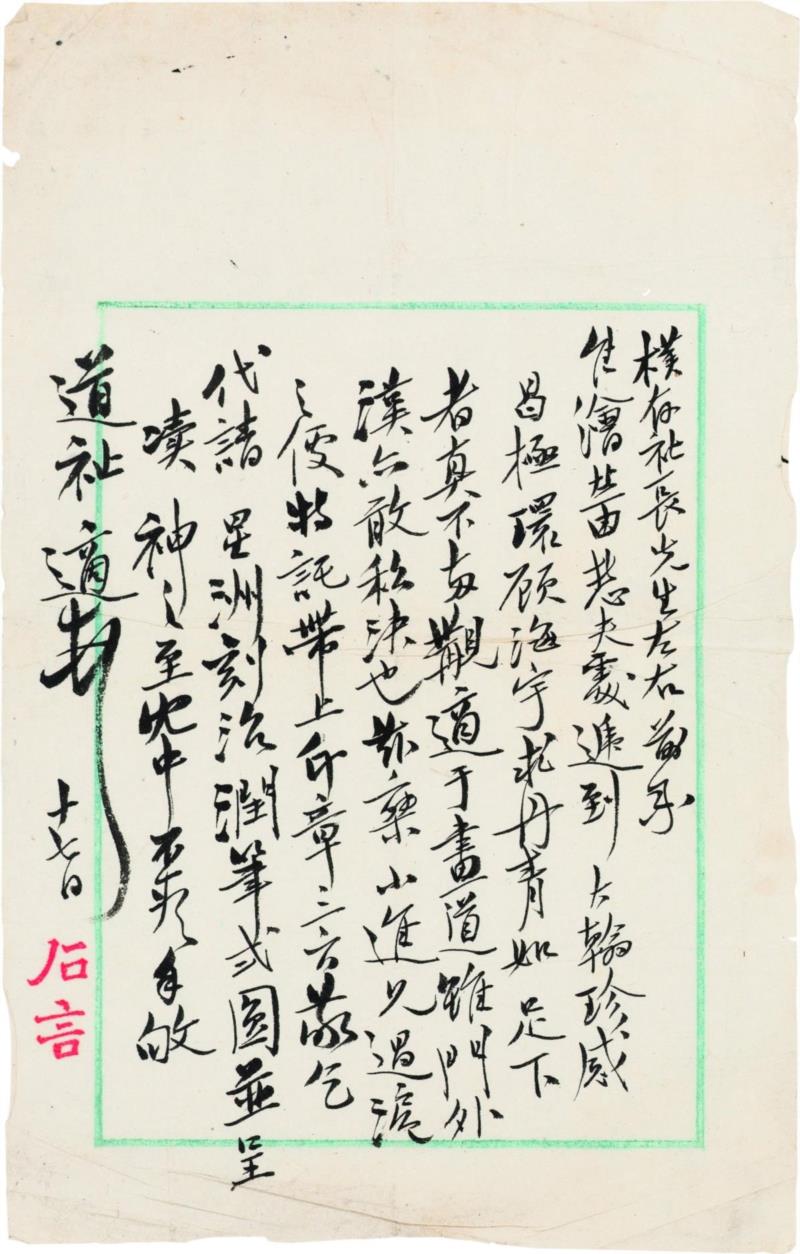 樸存社長先生左右前承
惠夫處遞到大翰珍感
曷極環顧海宇求丹青如足下
者真不多覯適于畫道雖門外
漢亦敢私決也茲小進兄過滬
之便特託帶上印章二方敬乞
代請星洲刻治潤筆弍圓並呈
瀆神之至也中不莊手啟
道祉適
十七日
石言